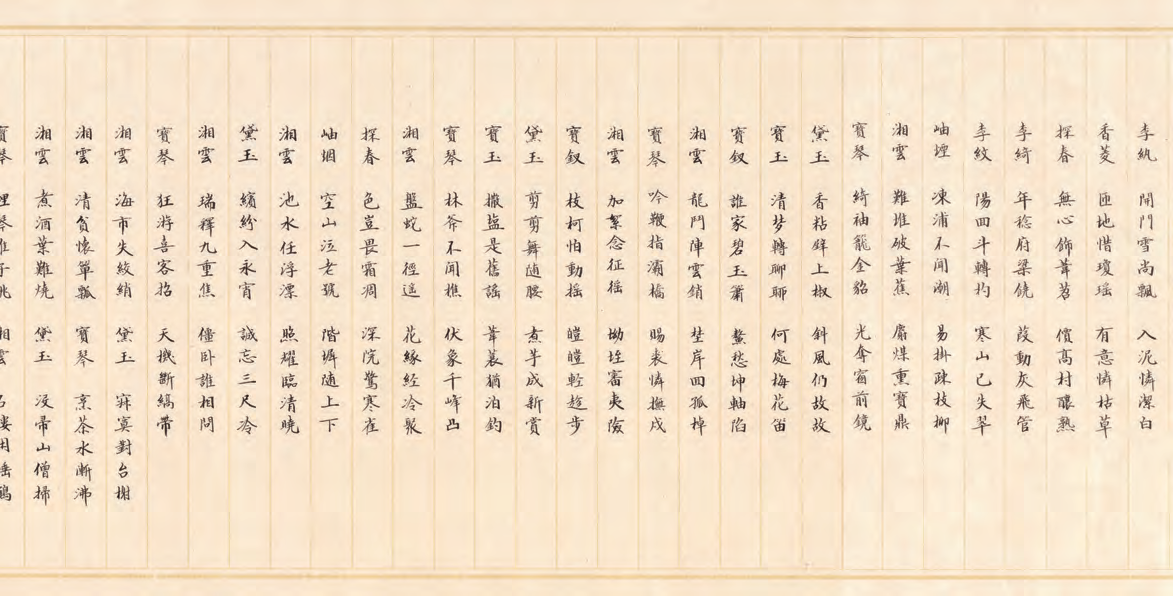 李紈 開門雪尚飄 入泥憐潔白
香菱 匝地惜瓊瑤 有意憐枯草
探春 無心飾葦苕 價高村釀熟
李綺 年稔府梁饒 葭動灰飛管
李紋 陽回斗轉杓 寒山已失翠
岫煙 凍浦不聞潮 易掛疎枝柳
湘雲 難堆破葉蕉 麝煤熏寶鼎
寶琴 綺袖籠金貂 光奪窗前鏡
黛玉 香粘壁上椒 斜風仍故故
寶玉 清梦轉聊聊 何處梅花笛
寶釵 誰家碧玉簫 鰲愁坤軸陷
湘雲 龍鬥陣雲銷 埜岸回孤棹
寶琴 吟鞭指灞橋 賜裘憐撫戍
湘雲 加絮念征徭 坳垤審夷險
寶釵 枝柯怕動搖 皚皚輕趁步
黛玉 剪剪舞隨腰 煮芋成新賞
寶玉 撒鹽是舊謠 葦蓑猶泊釣
寶琴 林斧不聞樵 伏象千峰凸
湘雲 盤蛇一徑遥 花緣經冷聚
探春 色豈畏霜凋 深院驚寒雀
岫烟 空山泣老鴞 階墀随上下
湘雲 池水任浮漂 照耀臨清曉
黛玉 繽紛入永宵 誠忘三尺冷
湘雲 瑞釋九重焦 僵卧誰相問
寶琴 狂游喜客招 天機斷縞帶
湘雲 海市失鮫綃 黛玉 寂寞對台榭
湘雲 清貧懷簞瓢 寶琴 烹茶水漸沸
湘雲 煮酒葉難燒 黛玉 沒帚山僧掃